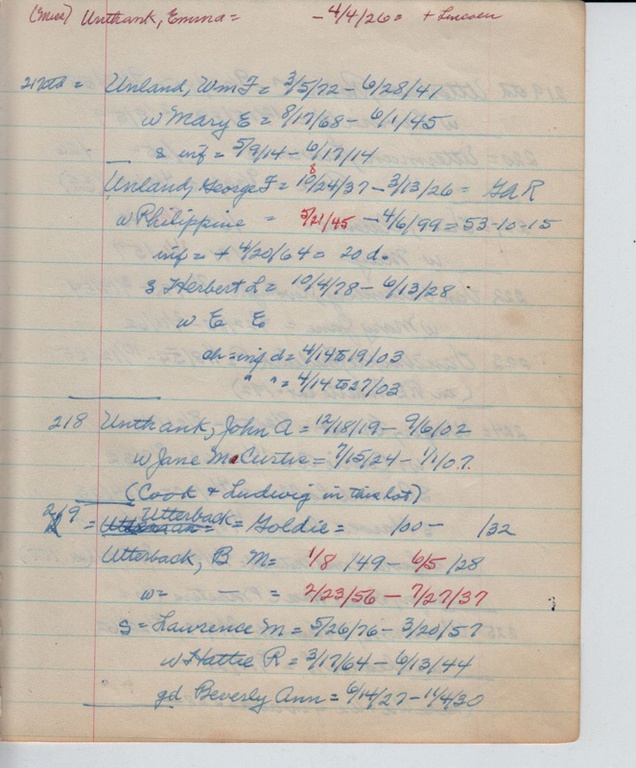 (Miss) Unthank, Emma = - 4/4/26 = + Lincoln
217 = Unland, Wm F = 3/5/72 - 6/28/41
w Mary E = 8/17/68 - 6/1/45
s inf = 5/9/14 - 6/17/14
8
Unland, George F = 10/24/37 - 3/13/26 = GAR
w Philippine = 5/21/45 - 4/6/99 = 53-10-15
inf = + 4/20/64 = 20 d.
s Herbert L = 10/4/78 - 6/13/28
w E. E
ch = inf d = 4/14 to 19/03
" " = 4/14 to 27/03
218 Unthank, John A = 12/18/19 - 9/6/02
w Jane McCurtie = 7/15/24 - 1/1/07.
(Cook + Ludwig in this lot)
219 = Utterback = Goldie = /00 - /32
Utterback, B M = 1/8 /49 - 6/5 /28
w = — = 2/23/56 - 7/27/37
s = Lawrence M = 5/26/76 - 3/20/57
w Hattie R = 3/17/64 - 6/13/44
gd Beverly Ann = 6/14/27 - 11/4/30